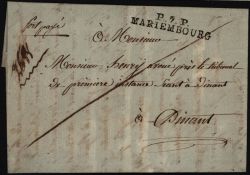 P. 7. P.
MARIEMBOURG
port payé
à Monsieur
Monsieur henry avoué près le tribunal
de première instance séant à Dinant
à Dinant